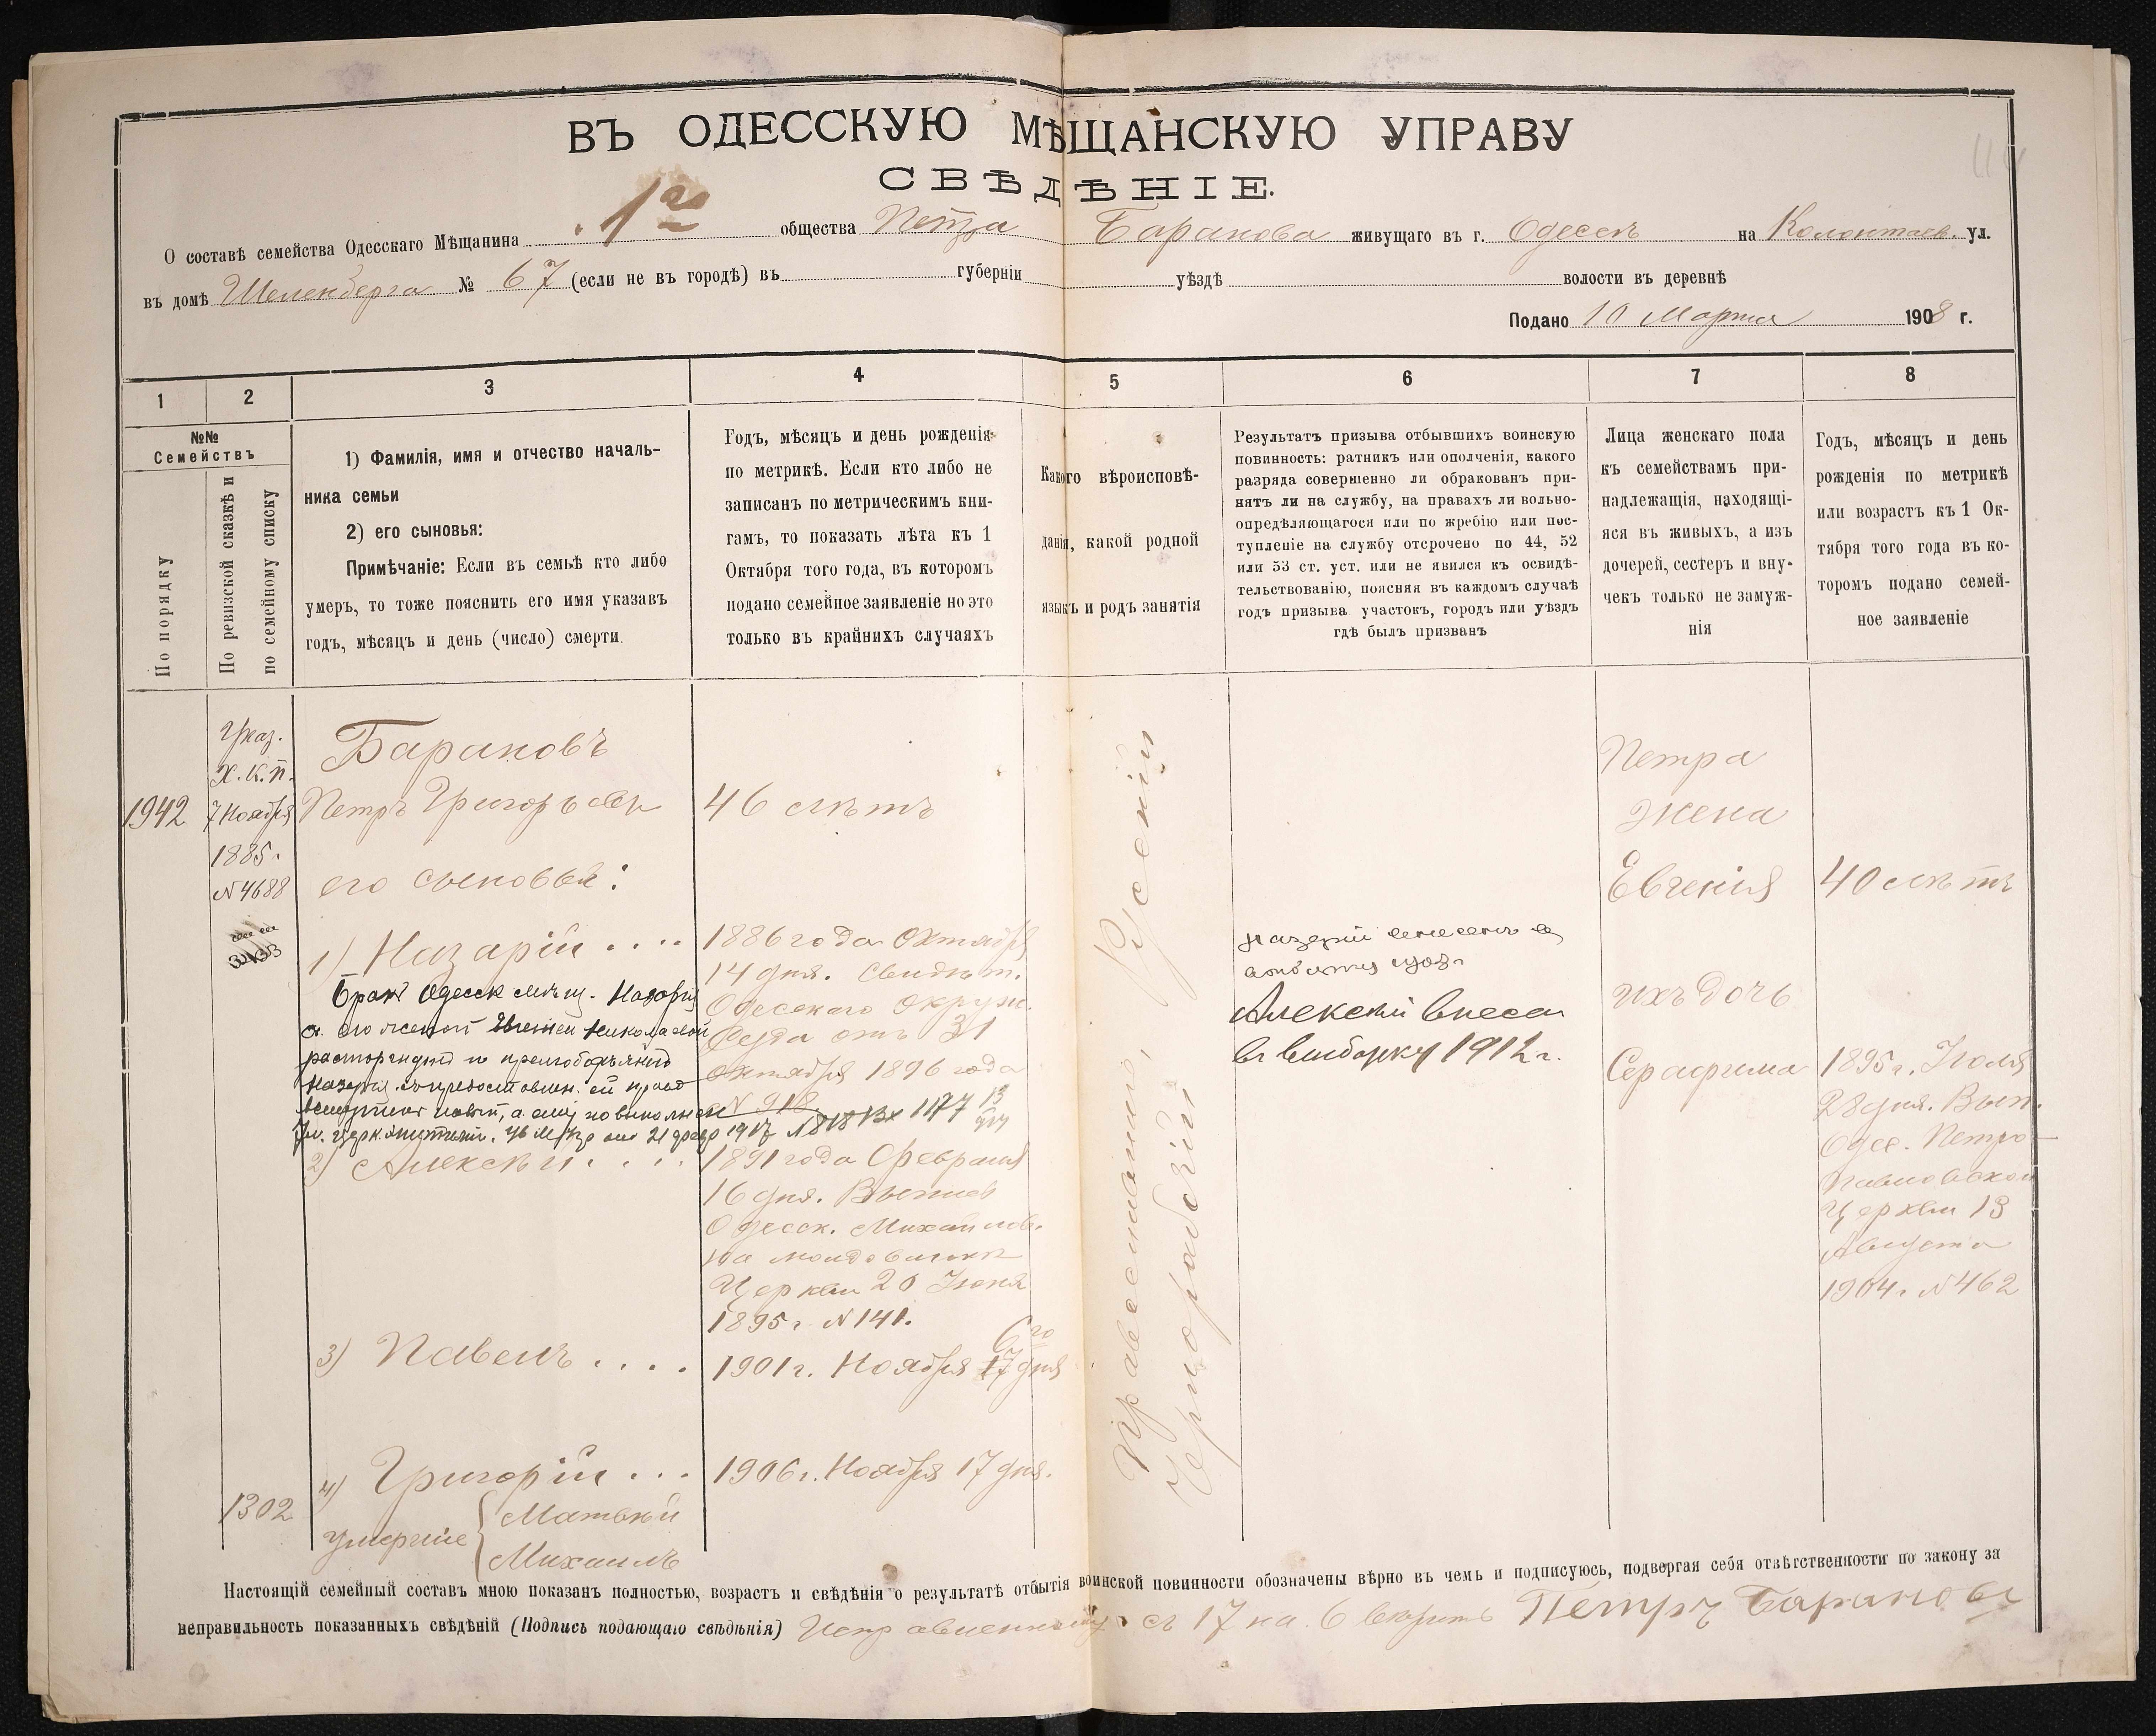 ВЪ ОДЕССКУЮ МѢЩАНСКУЮ УПРАВУ
СВѢДѢНІЕ.
О составѣ семейства Одесскаго Мѣщанина 1го общества Петра Баранова живущаго въ г. Одессѣ на Колонтаев. ул.
въ домѣ Шеленберга № 67 (если не въ городѣ) въ губерніи уѣздѣ волости въ деревнѣ
Подано 10 Марта 1908 г.
1 2 3 4 5 6 7 8
№№
Семействъ
По порядку
По ревизской сказкѣ и
по семейному списку
1) Фамилія, имя и отчество началь-
ника семьи
2) его сыновья:
Примѣчаніе: Если въ семьѣ кто либо
умеръ, то тоже пояснить его имя указавъ
годъ, мѣсяцъ и день (число) смерти.
Годъ, мѣсяцъ и день рожденія
по метрикѣ. Если кто либо не
записанъ по метрическимъ кни-
гамъ, то показать лѣта къ 1
Октября того года, въ которомъ
подано семейное заявленіе но это
только въ крайнихъ случаяхъ
Какого вѣроисповѣ-
данія, какой родной
языкъ и родъ занятія
Результатъ призыва отбывшихъ воинскую
повинность: ратникъ или ополченія, какого
разряда совершенно ли обракованъ при-
нятъ ли на службу, на правахъ ли вольно-
опредѣляющагося или по жребію или пос-
тупленіе на службу отсрочено по 44, 52
или 53 ст. уст. или не явился къ освидѣ-
тельствованію, поясняя въ каждомъ случаѣ
годъ призыва участокъ, городъ или уѣздъ
гдѣ былъ призванъ
Лица женскаго пола
къ семействамъ при-
надлежащія, находящі-
яся въ живыхъ, а изъ
дочерей, сестеръ и вну-
чекъ только не замуж-
нія
Годъ, мѣсяцъ и день
рожденія по метрикѣ
или возрастъ къ 1 Ок-
тября того года въ ко-
торомъ подано семей-
ное заявленіе
1942
Указ.
Х. К. П.
7 Ноября
1885 г.
№ 4688
3433
1302
Барановъ
Петръ Григорьевъ
его сыновья:
1) Назарій . . . .
Бракъ Одесск мѣщ. Назарія
съ его женой Евгенией Николаевой
расторгнутъ
2) Алексѣй . . . .
3) Павелъ . . . .
4) Григорій . . .
умершіе Матвѣй
Михаилъ
46 лѣтъ
1886 года Октября
14 дня. Свидѣт.
Одесскаго Окружн.
Суда отъ 31
Октября 1896 года
№ 918
1891 года Февраля
16 дня. Выпись
Одесск. Михайлов.
на молдованкѣ
Церкви 20 Іюня
1895 г. № 141.
6го
1901 г. Ноября 17 дня
1906 г. Ноября 17 дня.
Православнаго, Русскій
Чернорабочій
Алексѣй внесен
въ выборку 1912 г.
Петра
жена
Евгенія
ихъ дочь
Серафима
40 лѣтъ
1895 г. Іюля
28 дня. Вып.
Одес. Петро-
павловской
Церкви 13
Августа
1904 г. № 462
Настоящій семейный составъ мною показанъ полностью, возрастъ и свѣдѣнія о результатѣ отбытія воинской повинности обозначены вѣрно въ чемъ и подписуюсь, подвергая себя отвѣтственности по закону за
неправильность показанныхъ свѣдѣній (Подпись подающаго свѣдѣнія) Исправленному съ 17 на 6 вѣрить Петръ Барановъ